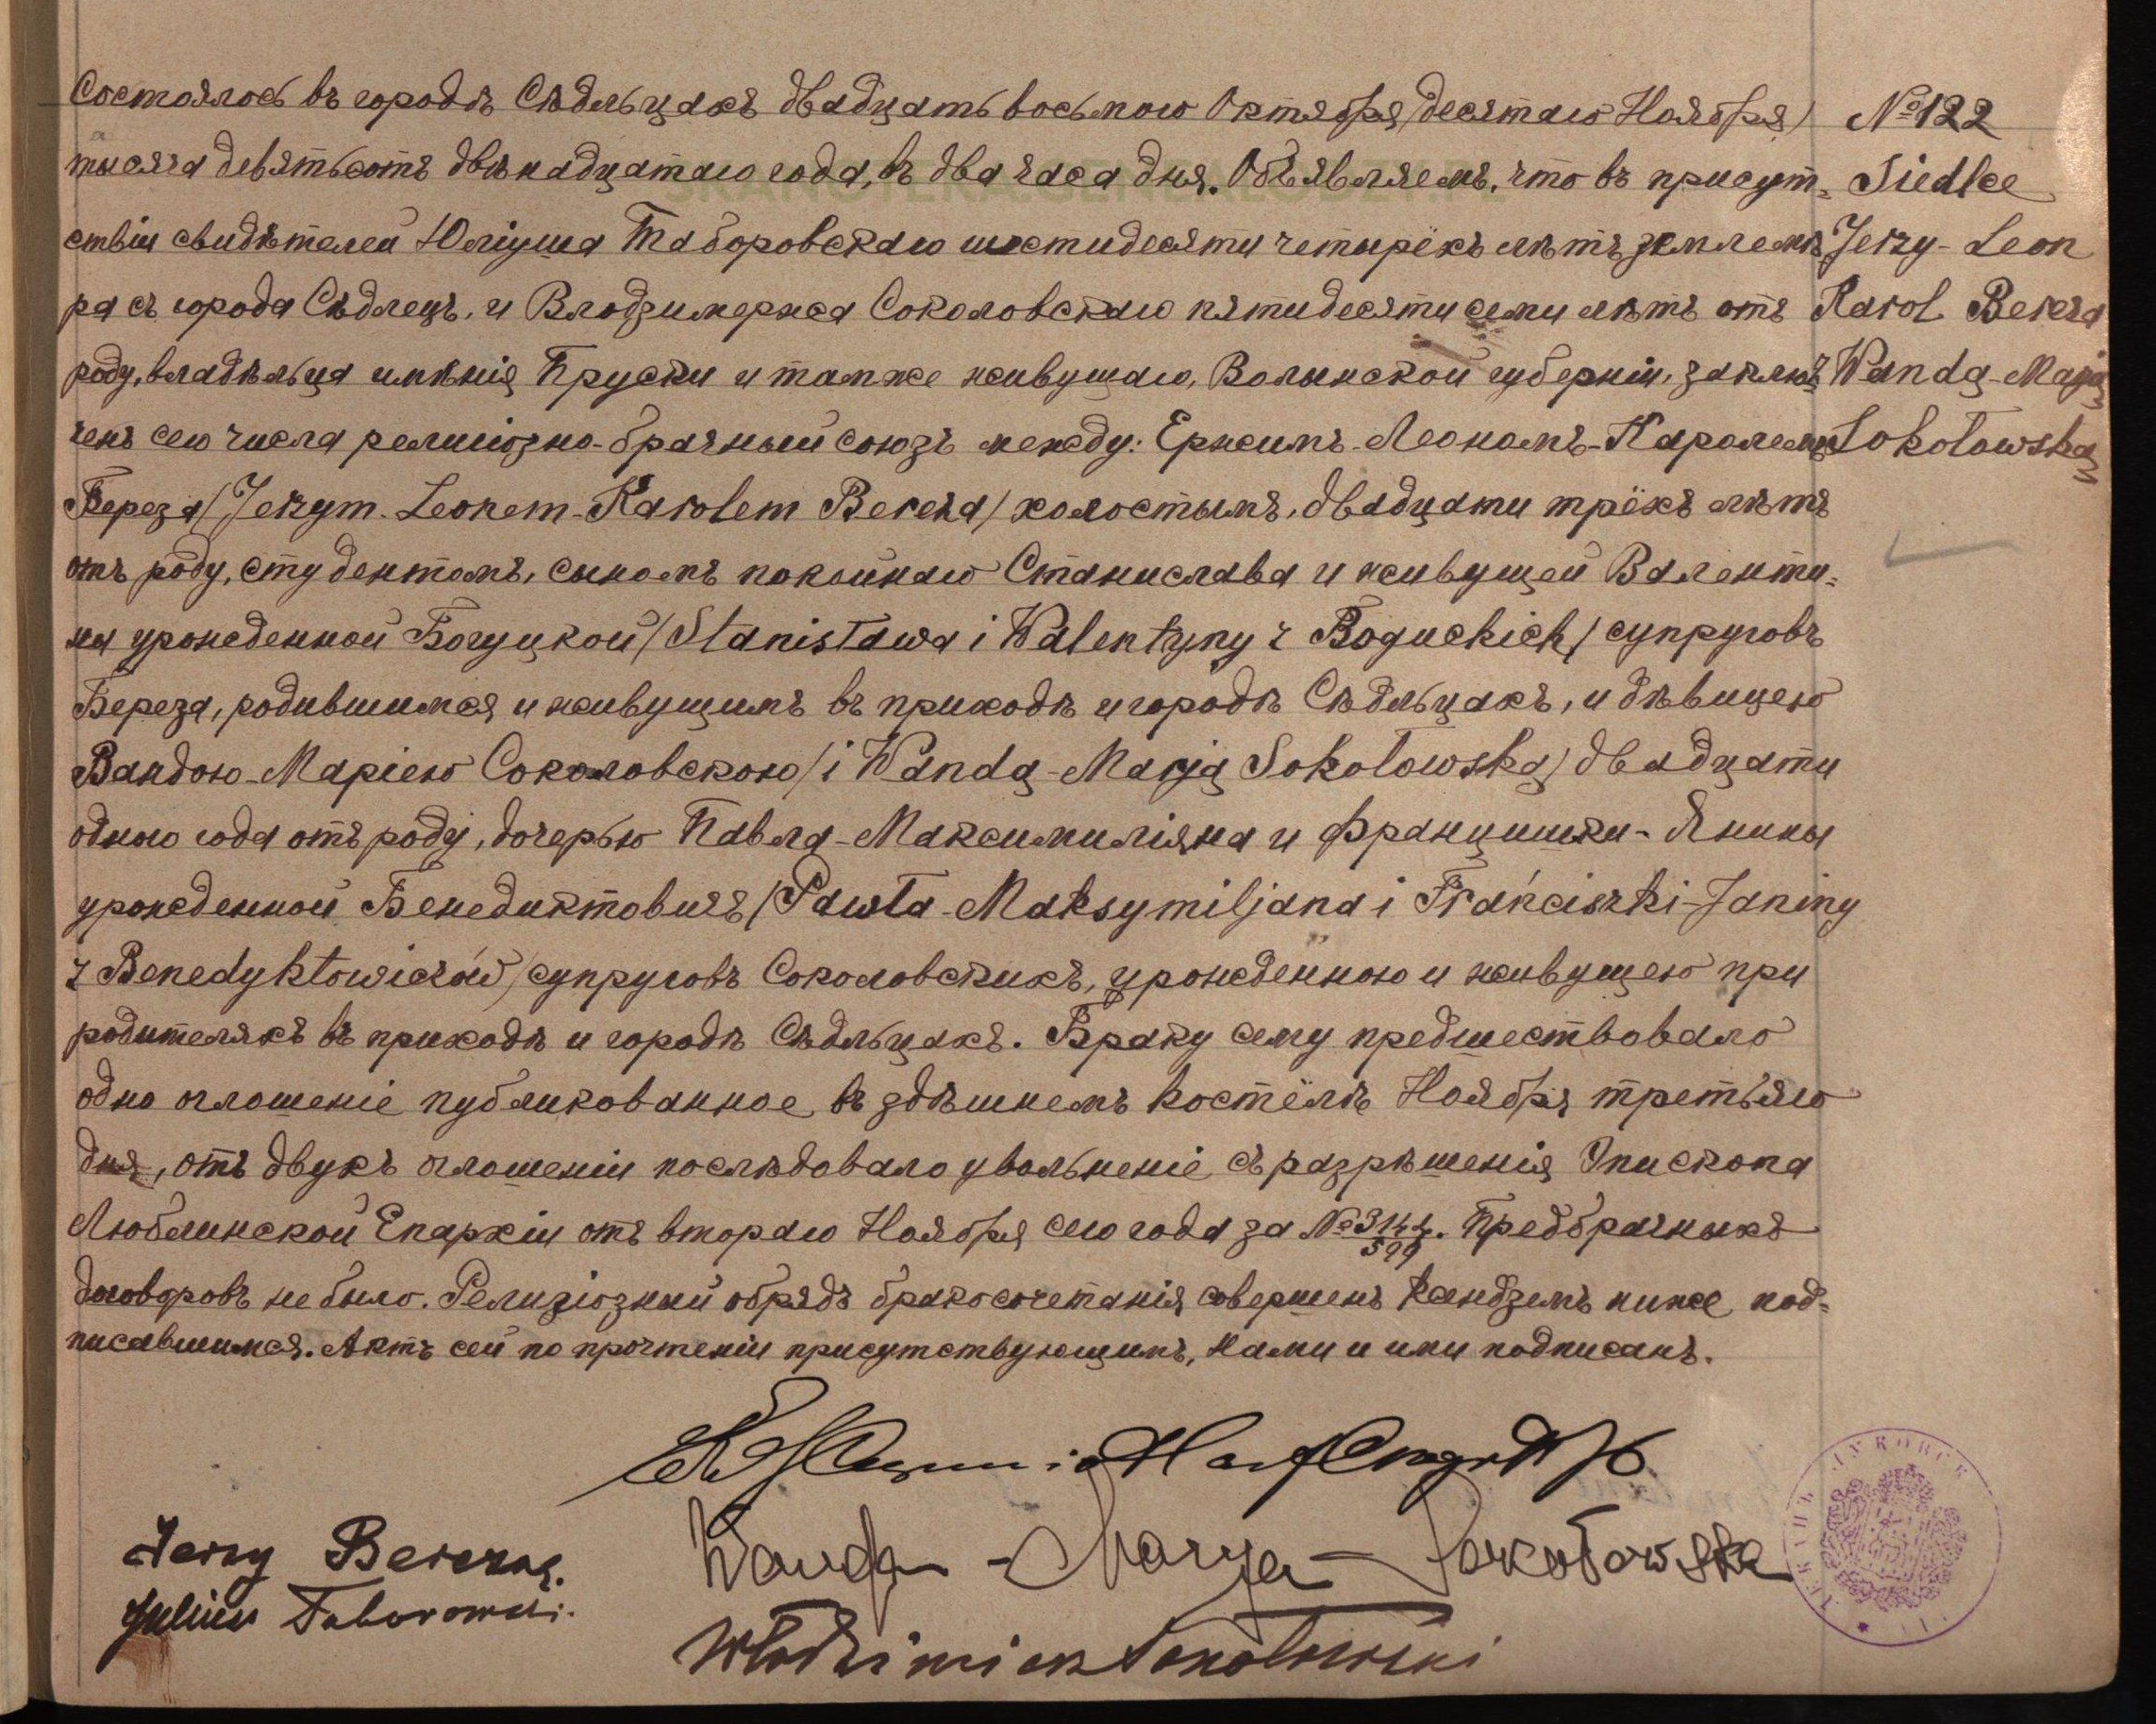 Состоялось въ городѣ Сѣдльцахъ двадцать восьмого Октября /десятаго Ноября/
тысяча девятьсотъ двѣнадцатаго года, въ два часа дня. Объявляемъ, что въ присут=
ствіи свидѣтелей Юліуша Таборовскаго шестидесяти четырёхъ лѣтъ землемѣ
ра съ города Сѣдлецъ, и Влодзимержа Соколовскаго пятидесяти семи лѣтъ отъ
роду, владѣльца имѣнія Пруски и тамже живущаго, Волынской губерніи, заключ
ченъ сего числа религіозно-брачный союзъ между: Ержимъ-Леономъ-Каролемъ
Береза /Jerzym-Leonem-Karolem Bereza/ холостымъ, двадцати трёхъ лѣтъ
отъ роду, студентомъ, сыномъ покойнаго Станислава и живущей Валенти=
ны урожденной Богуцкой /Stanisława i Walentyny z Boguckich/ супруговъ
Береза, родившимся и живущимъ въ приходѣ и городѣ Сѣдльцахъ, и дѣвицею
Вандою-Маріею Соколовскою /i Wandą-Marją Sokołowską/ двадцати
одного года отъ роду, дочерью Павла-Максимиліяна и Францишки-Янины
урожденной Бенедиктовичъ /Pawła-Maksymiljana i Franciszki-Janiny
z Benedyktowiczów/ супруговъ Соколовскихъ, урожденною и живущею при
родителяхъ въ приходѣ и городѣ Сѣдльцахъ. Браку сему предшествовало
одно оглошеніе публикованное въ здѣшнемъ костёлѣ Ноября третьяго
дня, отъ двухъ оглошеніи послѣдовало увольненіе съ разрѣшенія Епископа
Люблинской Епархіи отъ втораго Ноября сего года за №
Предбрачныхъ
договоровъ не было. Религіозный обрядъ бракосочетанія совершенъ ксендземъ ниже под=
писавшимся. Актъ сей по прочтеніи присутствующимъ, Нами и ими подписанъ.
№ 122
Siedlce
Jerzy-Leon
Karol Bereza
Wanda-Marja
Sokołowska
Jerzy Bereza.
Wanda-Marya-Sokołowska
Juliusz Taborowski.
Włodzimierz Sokołowski
SKANOTEKA.GENEALODZY.PL